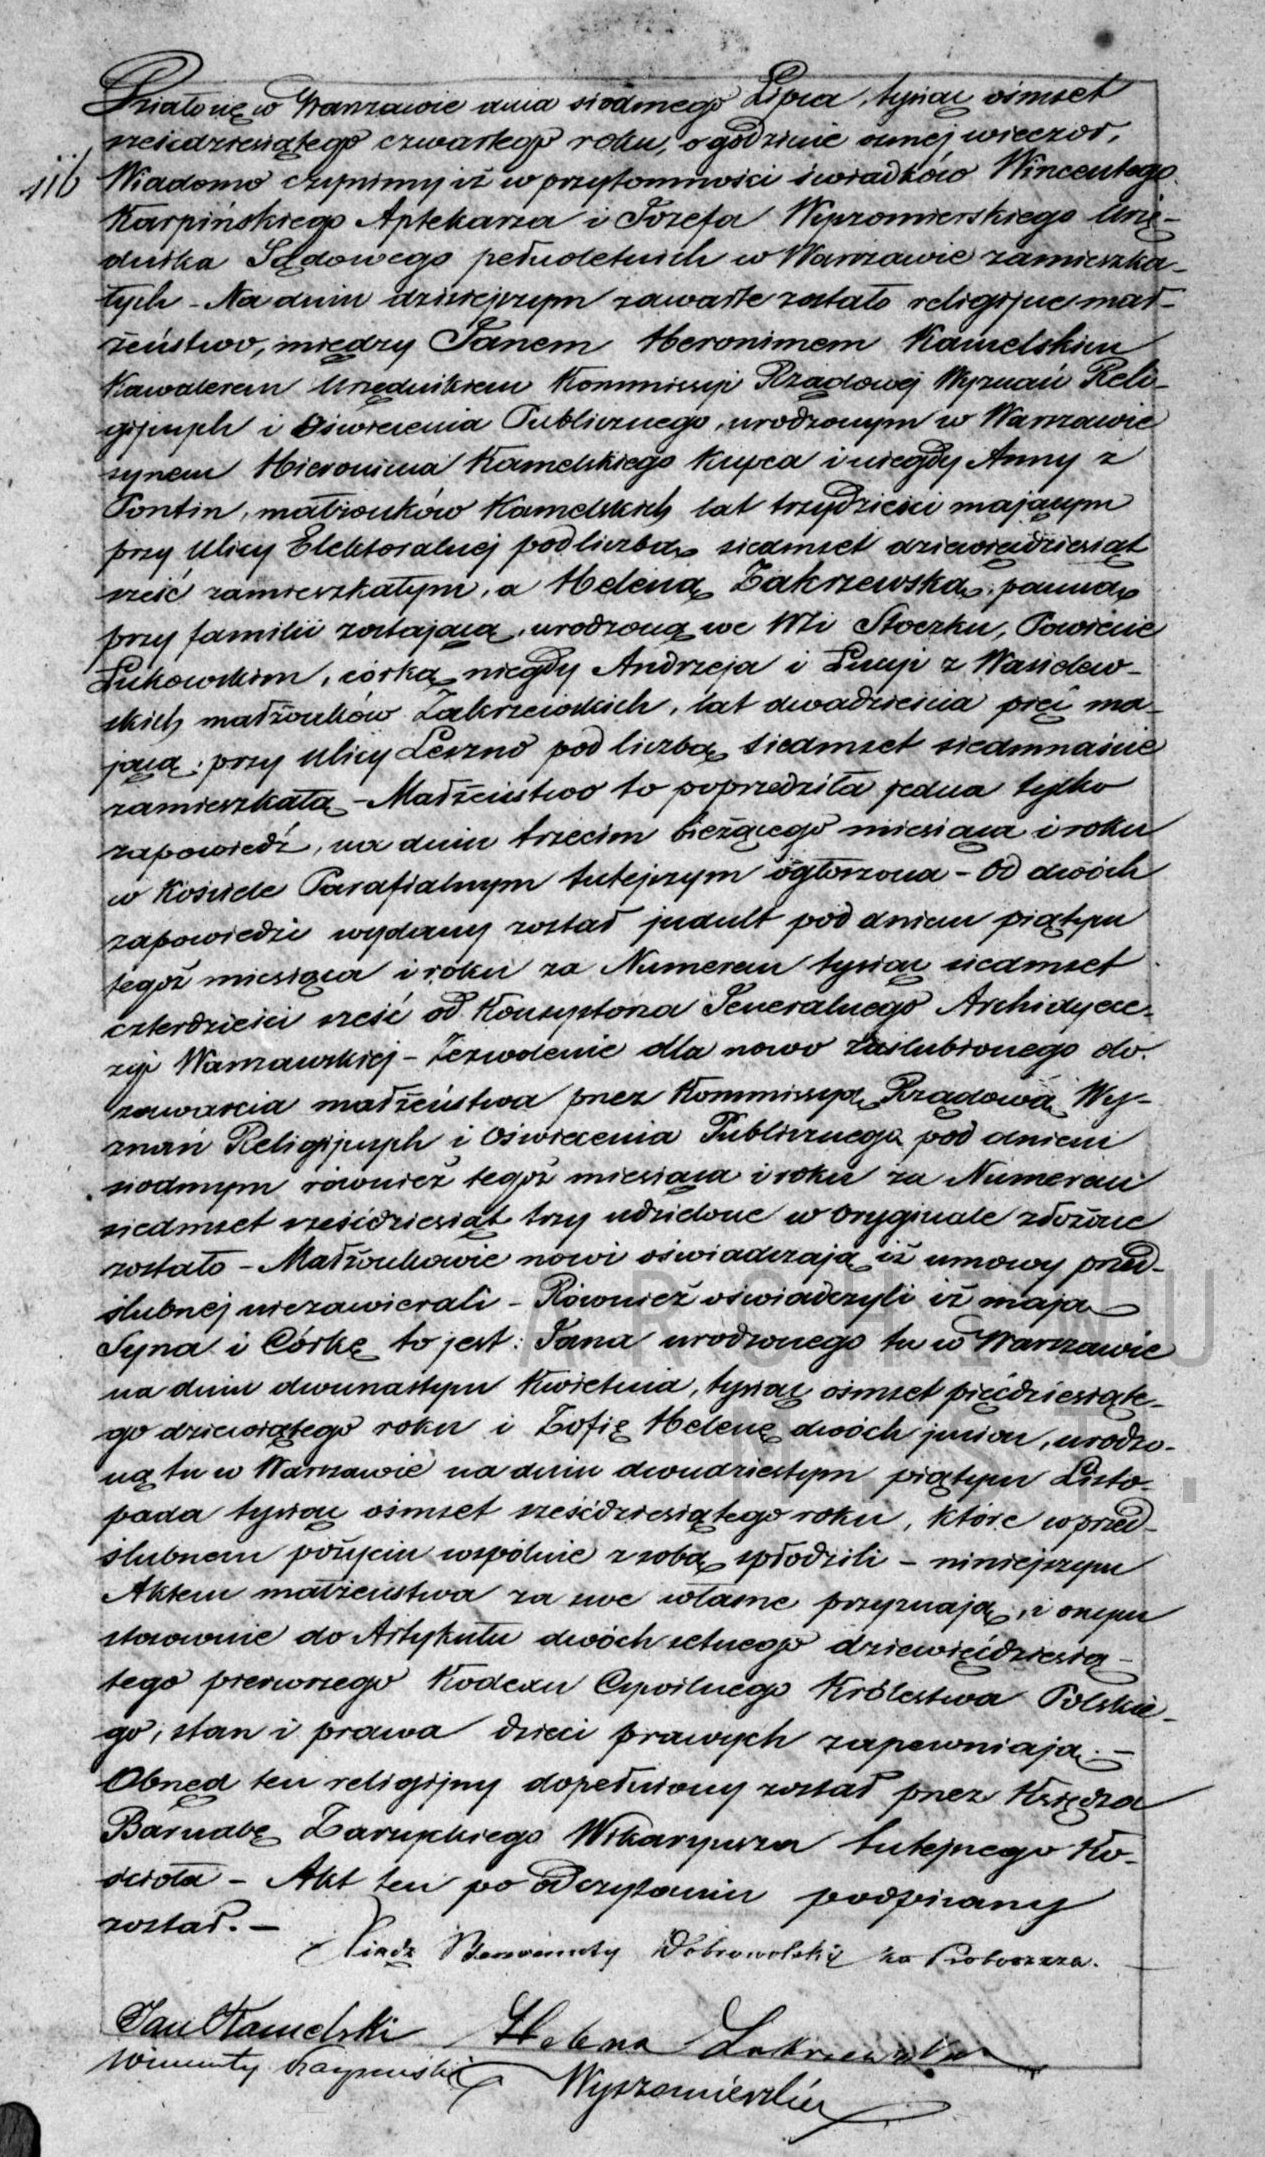 116
Działo się w Warszawie dnia siodmego Lipca, tysiąc ośmset
sześćdziesiątego czwartego roku, o godzinie osmej wieczór,
Wiadomo czynimy iż w przytomności świadków Wincentego
Karpińskiego Aptekarza i Józefa Wyszomierskiego Urzę-
dnika Sądowego pełnoletnich w Warszawie zamieszka-
łych – Na dniu dzisiejszym zawarte zostało religijne mał-
żeństwo, między Janem Heronimem Kamelskim
Kawalerem Urzędnikiem Kommissyi Rządowej Wyznań Reli-
gijnych i Oświecenia Publicznego, urodzonym w Warszawie
synem Hieronima Kamelskiego Kupca i niegdy Anny z
Pontin, małżonków Kamelskich lat trzydzieści mającym
przy Ulicy Elektoralnej pod liczbą siedmset dziewięćdziesiąt
sześć zamieszkałym, a Heleną Zakrzewską, panną
przy familii zostającą, urodzoną we Wsi Stoczku, Powiecie
Łukowskim, córką niegdy Andrzeja i Łucyi z Wasilew-
skich małżonków Zakrzewskich, lat dwadzieścia pięć ma-
jącą, przy Ulicy Leszno pod liczbą siedmset siedmnaście
zamieszkałą – Małżeństwo to poprzedziła jedna tylko
zapowiedź, na dniu trzecim bieżącego miesiąca i roku
w Kościele Parafialnym tutejszym ogłoszona – Od dwóch
zapowiedzi wydany został indult pod dniem piątym
tegoż miesiąca i roku za Numerem tysiąc siedmset
czterdzieści sześć od Konsystorza Jeneralnego Archidyece-
zyi Warszawskiej – Zezwolenie dla nowo zaślubionego do
zawarcia małżeństwa przez Kommissyą Rządową Wy-
znań Religijnych i Oświecenia Publicznego pod dniem
siodmym również tegoż miesiąca i roku za Numerem
siedmset sześćdziesiąt trzy udzielone w oryginale złożone
zostało – Małżonkowie nowi oświadczają iż umowy przed-
ślubnej niezawierali – Również oświadczyli iż mają
Syna i Córkę to jest: Jana urodzonego tu w Warszawie
na dniu dwunastym Kwietnia, tysiąc ośmset pięćdziesiąte-
go dziewiątego roku i Zofię Helenę dwóch imion, urodzo-
ną tu w Warszawie na dniu dwudziestym piątym Listo-
pada tysiąc ośmset sześćdziesiątego roku, które w przed-
ślubnem pożyciu wspólnie z sobą spłodzili – niniejszym
Aktem małżeństwa za swe własne przyznają, i onym
stosownie do Artykułu dwóchsetnego dziewięćdziesią-
tego pierwszego Kodexu Cywilnego Królestwa Polskie-
go, stan i prawa dzieci prawych zapewniają. –
Obrzęd ten religijny dopełniony został przez Księdza
Barnabę Wikaryusza tutejszego Ko-
ścioła – Akt ten po odczytaniu podpisany
został. –
Xiądz Benwenuty Dobrowolski za Proboszcza.
Jan Kamelski Helena Zakrzewska
Wincenty Karpiński Wyszomierski
ARCHIWU
N. ST.